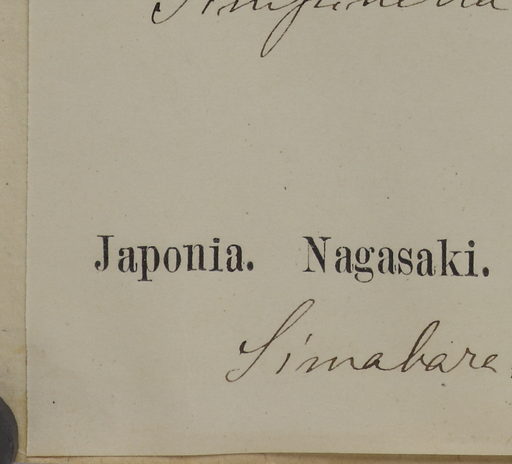 Japonia. Nagasaki.
Simabara,